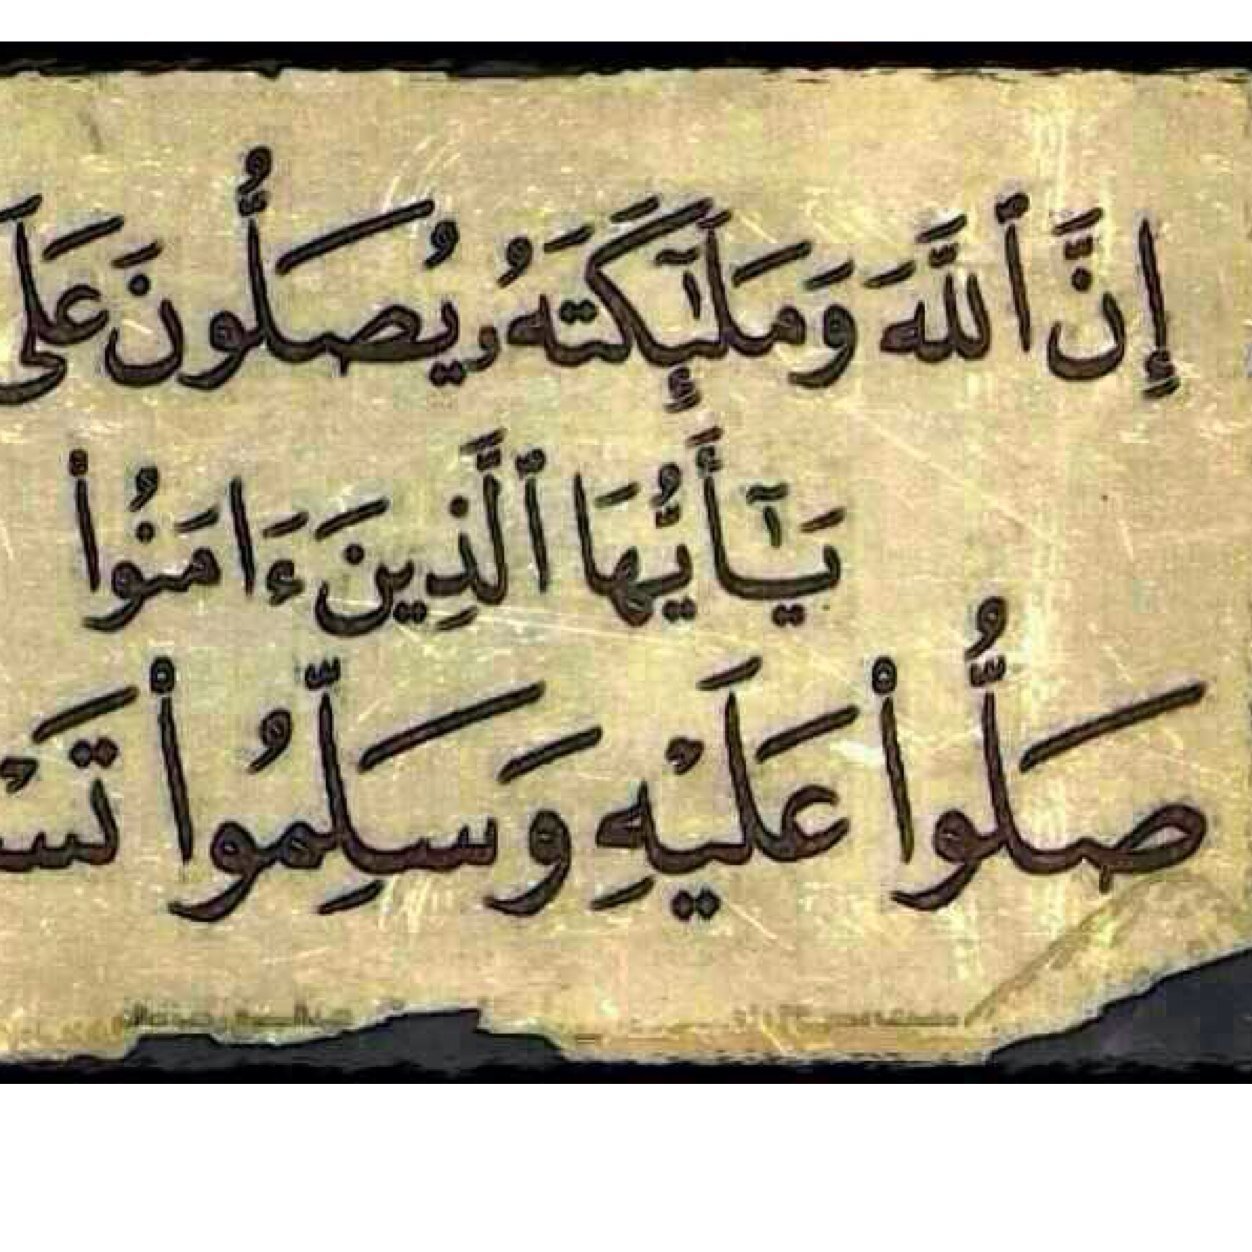 إِنَّ ٱللَّهَ وَمَلَٰٓئِكَتَهُۥ يُصَلُّونَ عَلَى
يَٰٓأَيُّهَا ٱلَّذِينَ ءَامَنُوا۟
صَلُّوا۟ عَلَيْهِ وَسَلِّمُوا۟ تَسْ